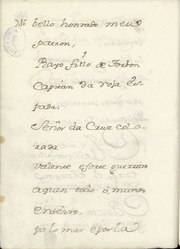 bello honrado meu
patron,
Rayo fillo de Torbon
Capitan da roja Es-
pada.
Señor da Cruz colo-
rada
valente e forte guerrein
a quen todo o mundo
enteiro,
po lo mar e por la